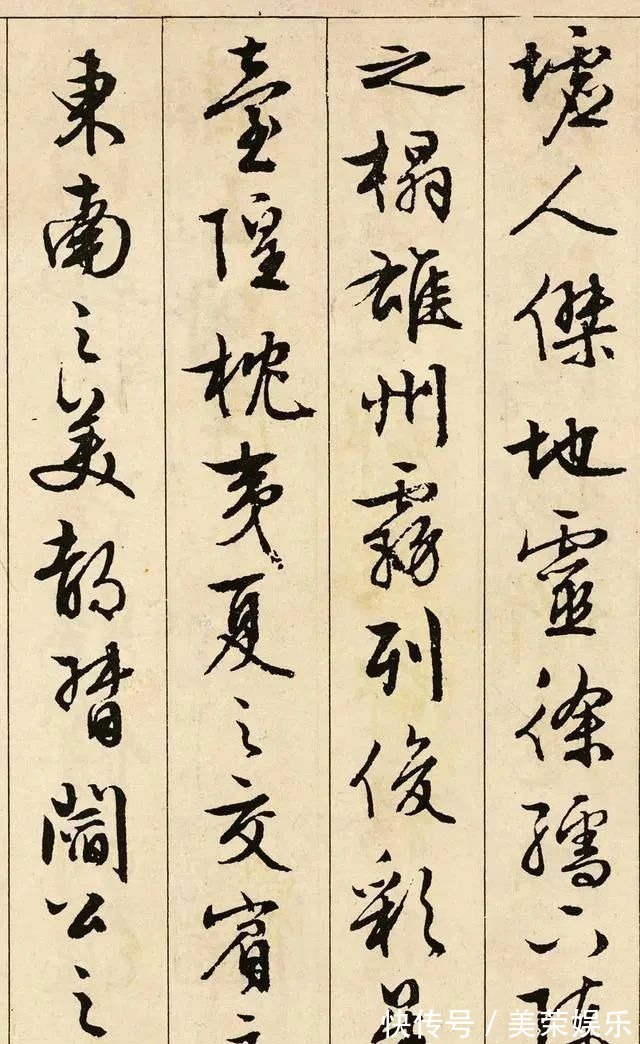 墟人傑地靈徐孺下陳
之榻雄州霧列俊彩星
臺隍枕夷夏之交賓
東南之美都督閻公之
快传号 / 美荣娱乐